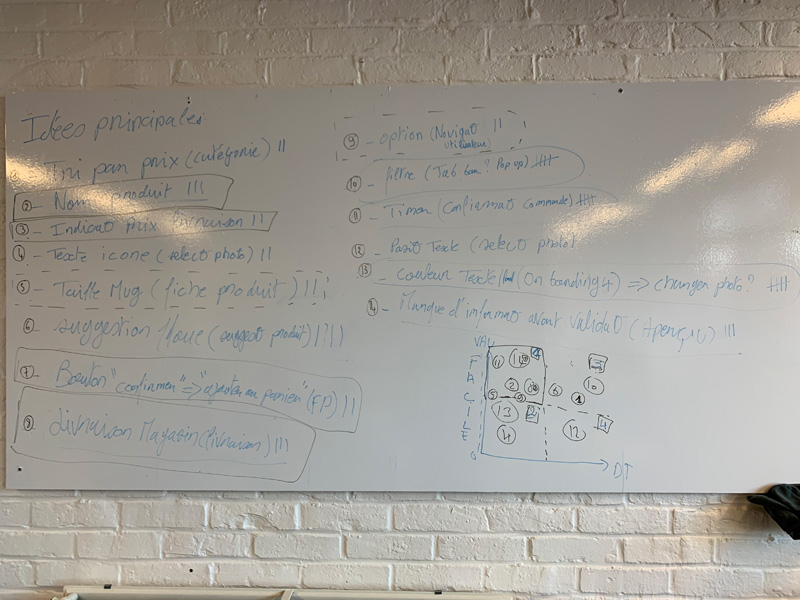 Idées principales
Tri par prix (catégorie) II
② - Nom produit III
③ - Indicat° prix livraison II
④ - Texte icone (select photo) II
⑤ - Taille Mug (fiche produit) III
⑥ - suggestion floue (suggest° produit)
⑦ - Bouton "confirmer" => "ajouter au panier" (FP) II
⑧ - Livraison Magasin (livraison) III
⑨ - option (Navigat° II
utilisateur)
⑩ - filtre (Tab bar? Pop up)
⑪ - Timer (Confirmat° commande)
⑫ - Posit° Texte (select photo)
⑬ - Couleur Texte (On boarding 4) => changer photo?
⑭ - Manque d'informat° avant validat° (Aperçu) III
VAL
F
A
C
I
L
E
11
1
3
2
6
10
13
2
4
4
12
DT